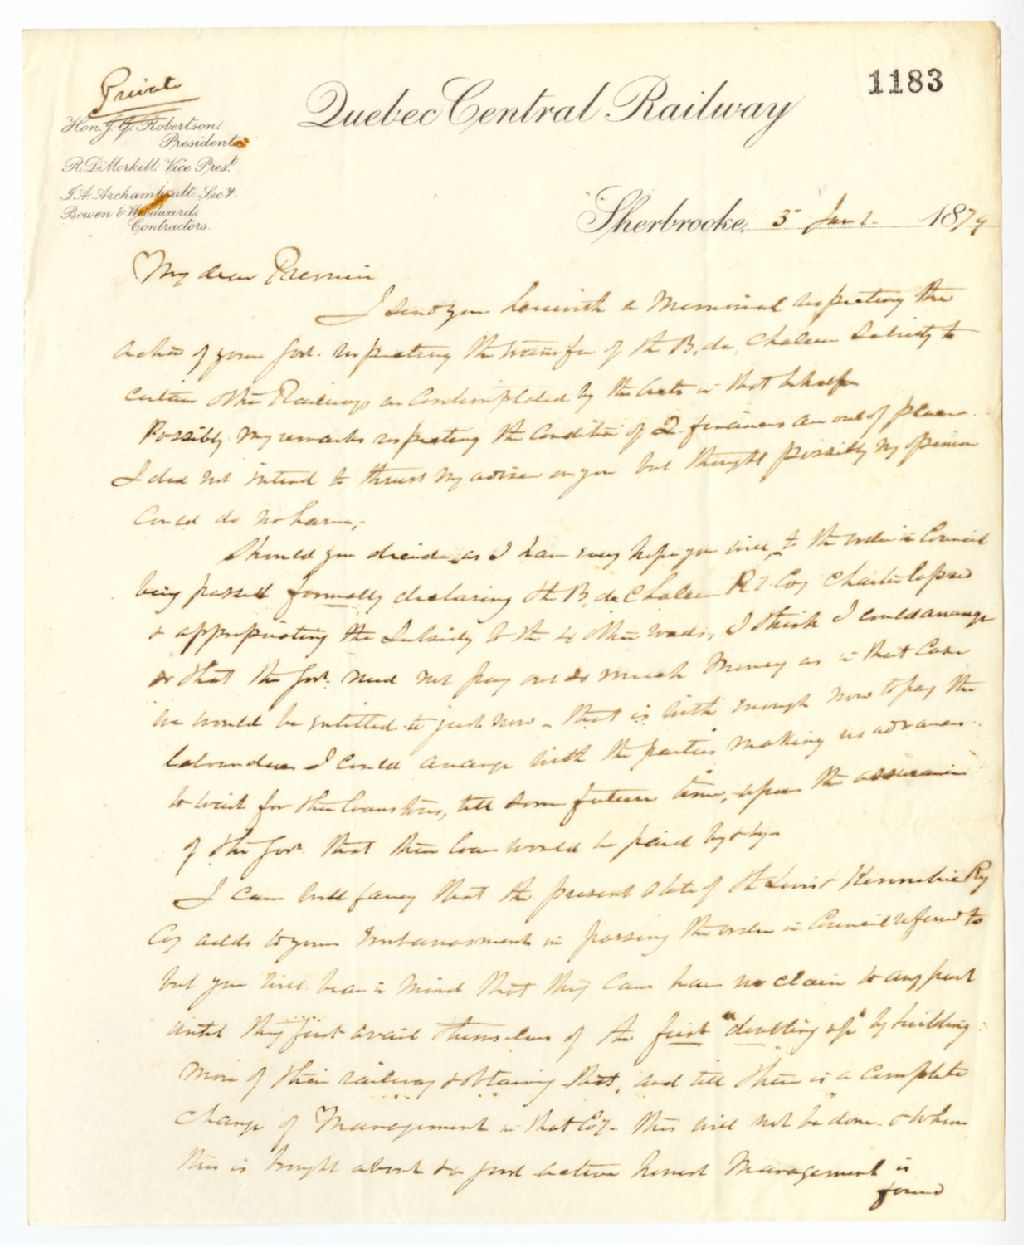 1183
Private
Quebec Central Railway
Hon. J. G. Robertson,
President.
R. D. Morkill Vice Prest.
J. A. Archambault Secy.
Bowen & Woodward
Contractors.
Sherbrooke, 3 Jan 1879
My dear Premier
I send you herewith a Memorial respecting the
action of your Govt. respecting the transfer of the B. des Chaleur Subsidy to
certain other Railways as contemplated by the Acts in that behalf
Possibly my remarks respecting the condition of Q. finances are out of place.
I did not intend to thrust my advice on you but thought possibly my opinion
could do no harm,
Should you decide, as I have every hope you will, to the order in Council
being passed formally declaring the B. des Chaleur Ry Coy Charter lapsed
& appropriating the Subsidy to the 4 other roads, I think I could arrange
so that the Govt. need not pay out so much Money as in that Case
we would be entitled to just now – that is with enough now to pay the
I could arrange with the parties making us advances
to wait for the till some future time, upon the assurance
of the Govt. that their loan would be paid by & by –
I can well fancy that the present state of the Levis & Kennebec Ry
Coy adds to your Embarrassment in passing the order in Council referred to
but you will bear in Mind that they can have no claim to any part
until they first avail themselves of the first "doubling up" by building
more of their railway & obtaining that, and till there is a complete
change of Management in that Coy. this will not be done. & when
this is brought about & a good active honest Management is
found